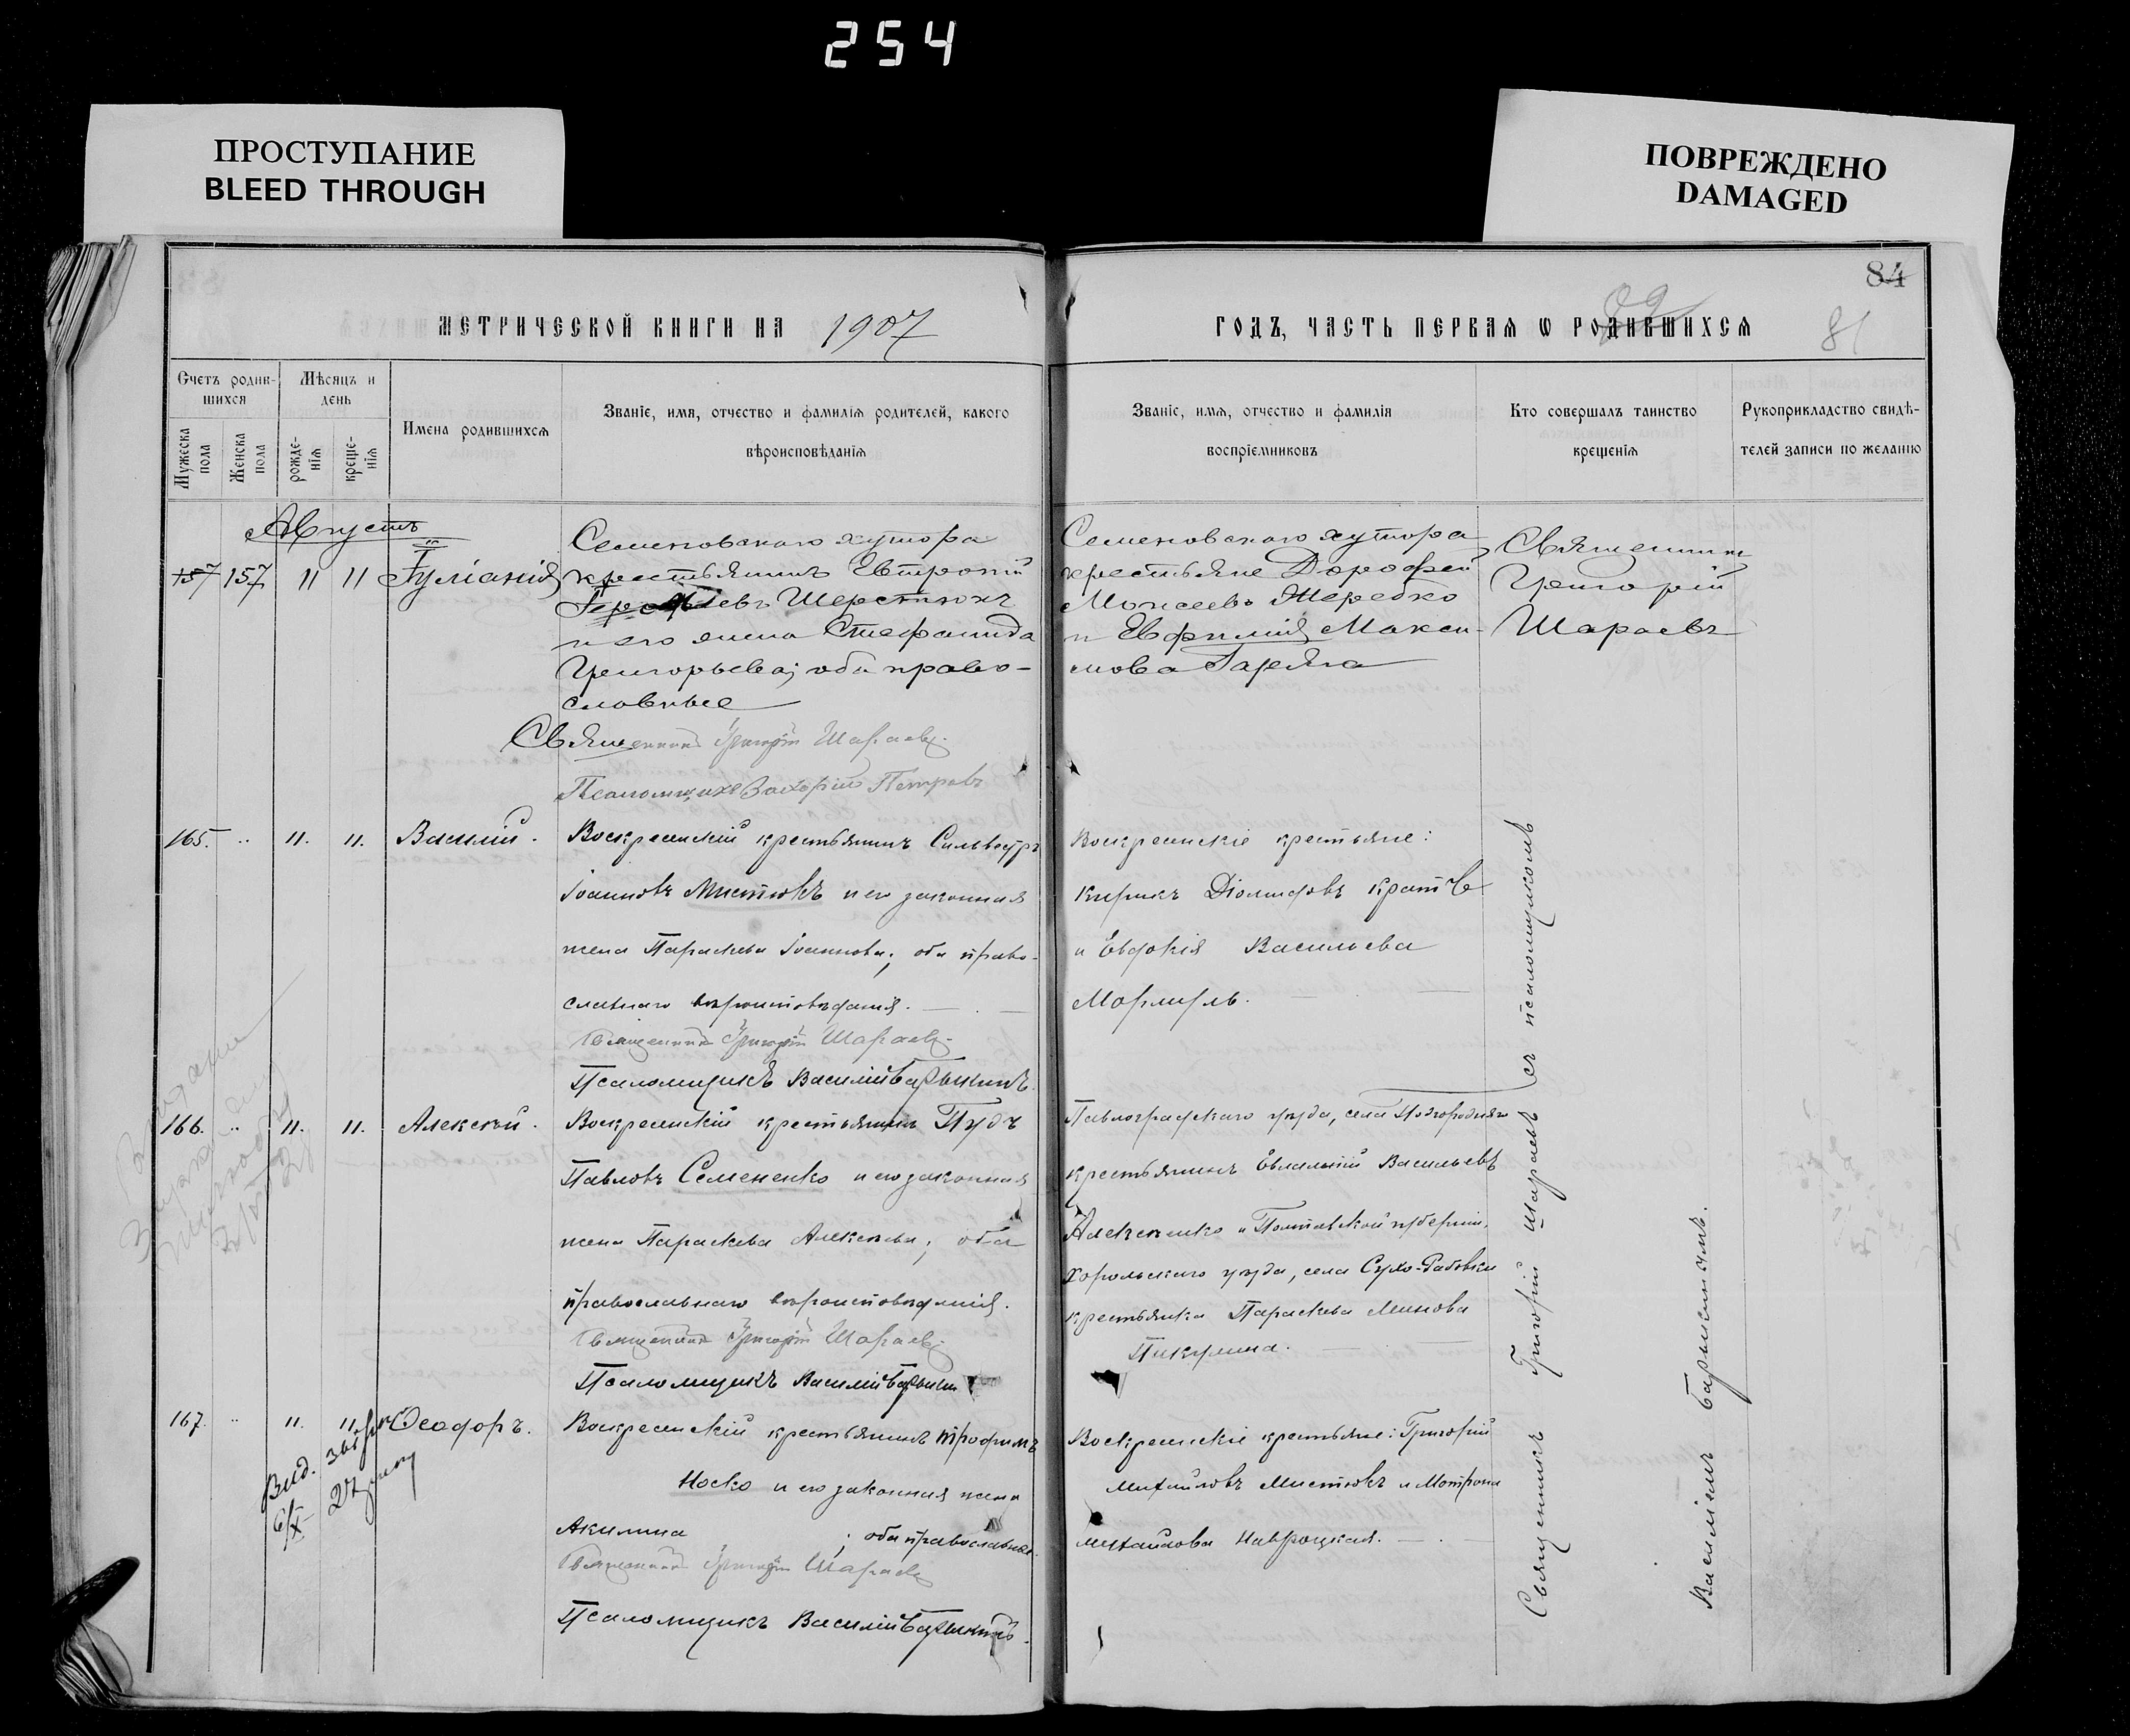 254
ПРОСТУПАНИЕ
BLEED THROUGH
ПОВРЕЖДЕНО
DAMAGED
84
81
МЕТРИЧЕСКОЙ КНИГИ НА 1907
ГОДЪ, ЧАСТЬ ПЕРВАЯ Ѡ РОДИВШИХСЯ
Счетъ родив-
шихся
Мужеска пола
Женска пола
Мѣсяцъ и
день
рожде-
нія
креще-
нія
Имена родившихся
Званіе, имя, отчество и фамилія родителей, какого
вѣроисповѣданія
Званіе, имя, отчество и фамилія
воспріемниковъ
Кто совершалъ таинство
крещенія
Рукоприкладство свидѣ-
телей записи по желанію
Августъ
157 157 11 11 Іуліанія
Семеновскаго хутора
крестьянинъ Евтропій
Шерстюкъ
и его жена Стефанида
Григорьева; оба право-
славные
Священникъ Григорій Шараевъ.
Псаломщикъ Захарій Петровъ
Семеновскаго хутора
крестьяне Дорофей
Моисеевъ Жеребко
и Евфимія Макси-
мова
Священникъ
Григорій
Шараевъ
165. .. 11. 11. Василій.
Воскресенскій крестьянинъ Сильвестръ
Іоанновъ Мистюкъ и его законная
жена Параскева Іоаннова; оба право-
славнаго вѣроисповѣданія.
Священникъ Григорій Шараевъ.
Псаломщикъ Василій
Воскресенскіе крестьяне:
Кирикъ Діомидовъ
и Евдокія Васильева
166. .. 11. 11. Алексѣй.
Воскресенскій крестьянинъ Пудъ
Павловъ Семененко и его законная
жена Параскева Алексѣева; оба
православнаго вѣроисповѣданія.
Священникъ Григорій Шараевъ.
Псаломщикъ Василій
Павлоградскаго уѣзда, села Подгородняго
крестьянинъ Евлампій Васильевъ
Алексѣенко и Полтавской губерніи,
Хорольскаго уѣзда, села
крестьянка Параскева
Пикулина.
167. .. 11. 11. Ѳеодоръ.
Воскресенскій крестьянинъ Трофимъ
Носко и его законная жена
Акилина ; оба православные.
Священникъ Григорій Шараевъ
Псаломщикъ Василій
Воскресенскіе крестьяне: Григорій
Михайловъ Мистюкъ и Мотрона
Михайлова Навроцкая.
Священникъ Григорій Шараевъ съ псаломщикомъ
Василіемъ